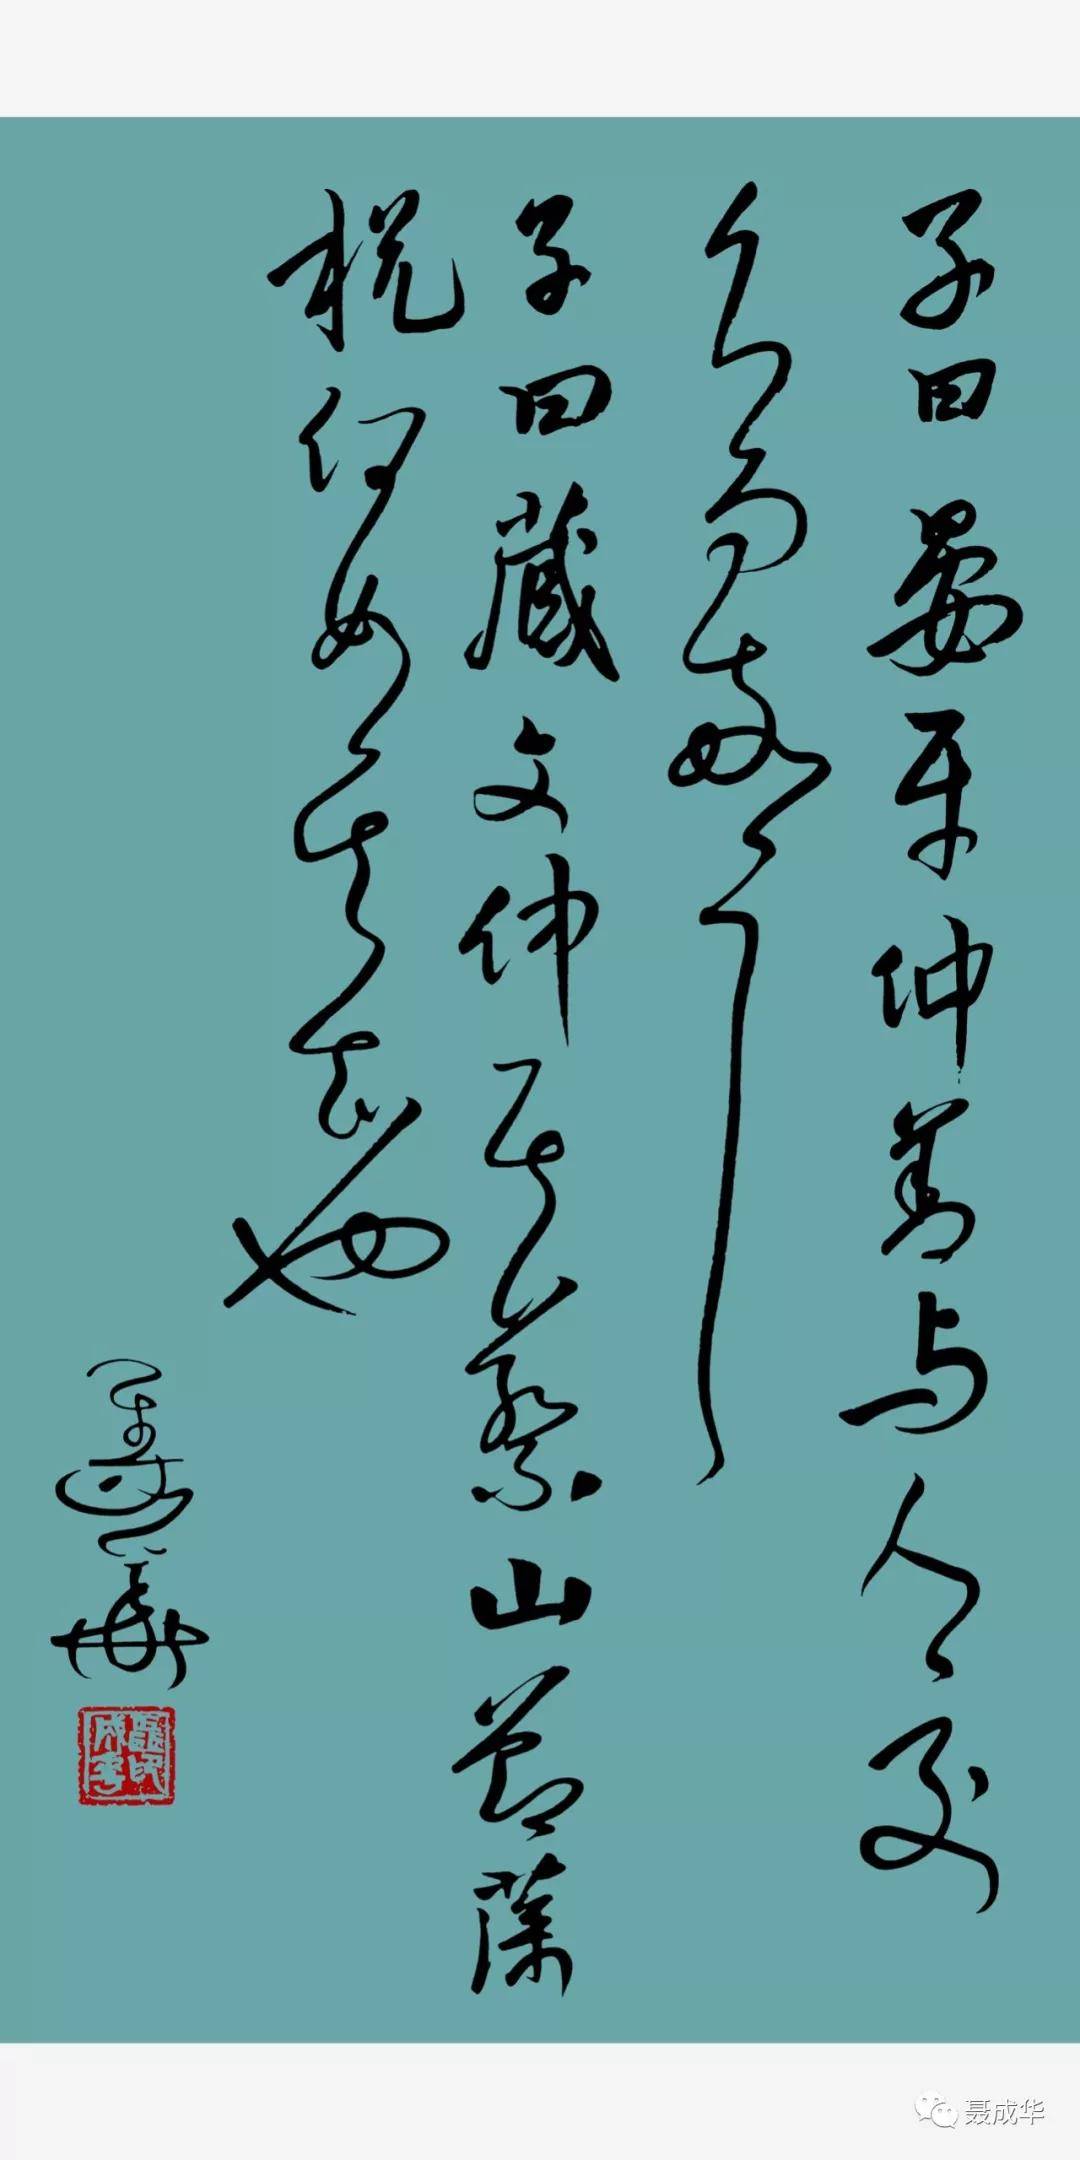 子曰晏平仲善与人交
久而敬之
子曰藏文仲居蔡山节藻
棁何如其知也
聂成华
聂成华